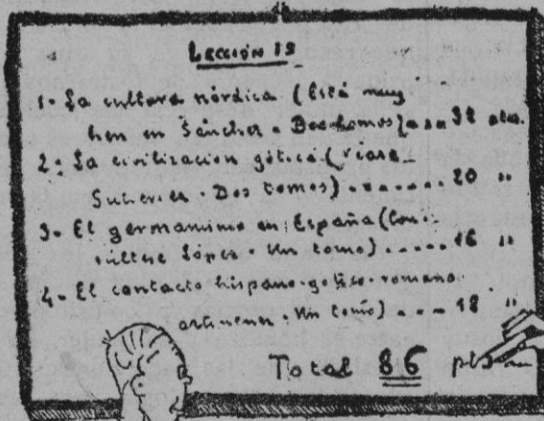 LECCIÓN 19
1- La cultura nórdica (Está muy
bien en Sánchez. Dos tomos) 32 ptas.
2- La civilización gótica (véase
Gutierrez. Dos tomos) ...... 20 "
3- El germanismo en España (Con-
súltese López. Un tomo) ..... 16 "
4- El contacto hispano-gotico-romano.
Un tomo) .... 18 "
Total 86 ptas